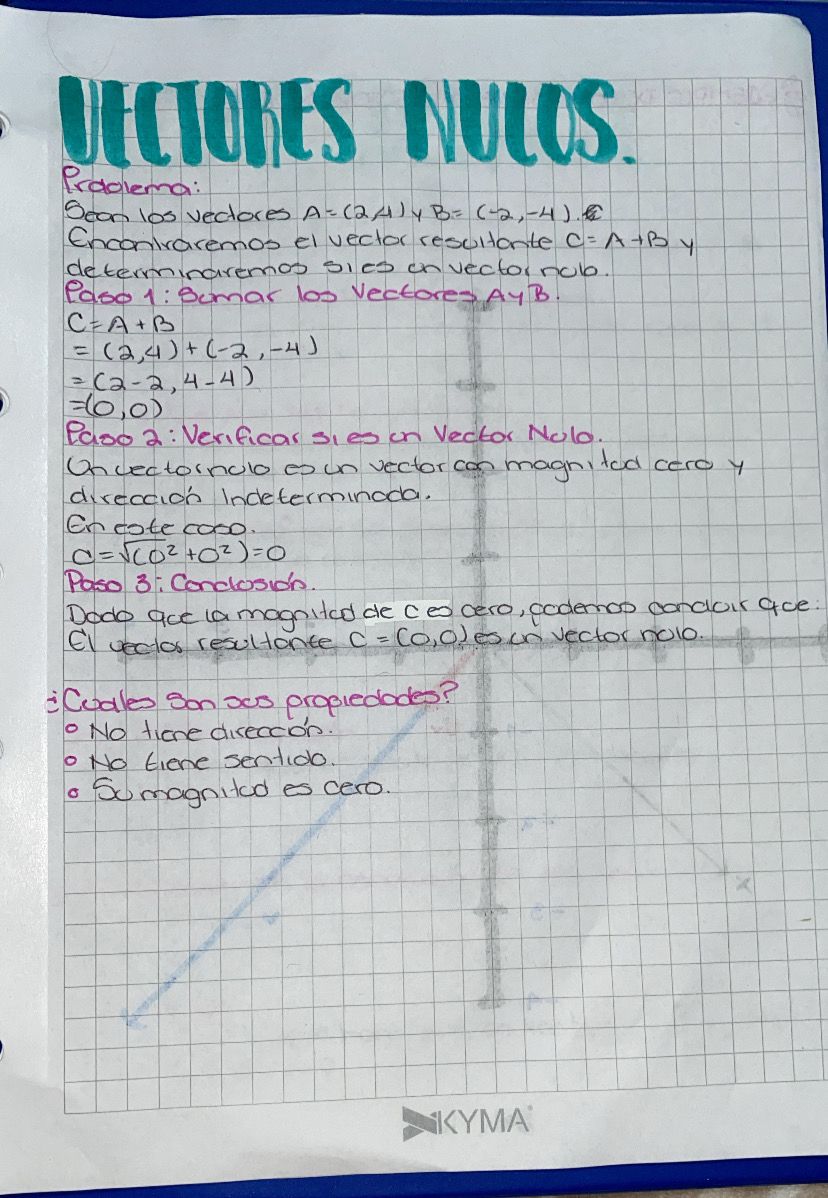 VECTORES NULOS.
Problema:
Sean los vectores A=(2,4) y B= (-2,-4).
Encontraremos el vector resultante C= A+B y
determinaremos si es un vector nulo.
Paso 1: Sumar los Vectores A y B.
C= A + B
= (2,4) + (-2, -4)
= (2-2, 4-4)
=(0,0)
Paso 2: Verificar si es un Vector Nulo.
Un vector nulo es un vector con magnitud cero y
dirección Indeterminada.
En este caso.
C=√(0² +0²)=0
Paso 3: Conclusión.
Dado que la magnitud de C es cero, podemos concluir que:
El vector resultante C = (0,0) es un vector nulo.
¿Cuales son sus propiedades?
• No tiene dirección.
• No tiene sentido.
• Su magnitud es cero.
KYMA